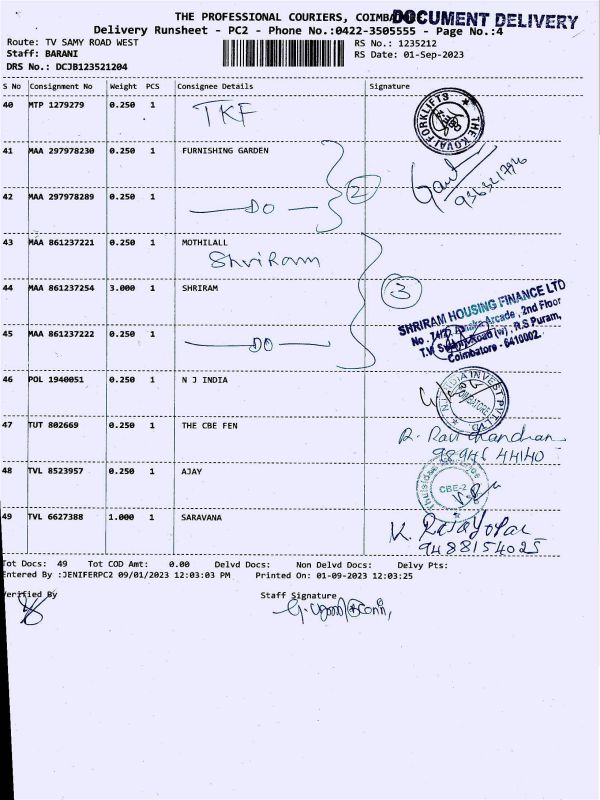 THE PROFESSIONAL COURIERS, COIMBA
DOCUMENT DELIVERY
Delivery Runsheet - PC2 - Phone No.:0422-3505555 - Page No.:4
Route: TV SAMY ROAD WEST
RS No.: 1235212
Staff: BARANI
RS Date: 01-Sep-2023
DRS No.: DCJB123521204
S No Consignment No Weight PCS Consignee Details Signature
40 MTP 1279279 0.250 1 TKF
THE KOVAI FORKLIFTS
41 MAA 297978230 0.250 1 FURNISHING GARDEN
2
42 MAA 297978289 0.250 1 DO
43 MAA 861237221 0.250 1 MOTHILALL
Shriram
44 MAA 861237254 3.000 1 SHRIRAM
3
SHRIRAM HOUSING FINANCE LTD
Arcade, 2nd Floor
T.V Swamy Road (w), R.S Puram,
Coimbatore - 6410002.
45 MAA 861237222 0.250 1 DO
46 POL 1940051 0.250 1 N J INDIA
COIMBATORE
47 TUT 802669 0.250 1 THE CBE FEN
R. Ravi chandran
98946 44140
48 TVL 8523957 0.250 1 AJAY
CBE-2
49 TVL 6627388 1.000 1 SARAVANA
K. Rajagopal
9488154025
Tot Docs: 49 Tot COD Amt: 0.00 Delvd Docs: Non Delvd Docs: Delvy Pts:
Entered By :JENIFERPC2 09/01/2023 12:03:03 PM Printed On: 01-09-2023 12:03:25
Verified By
Staff Signature